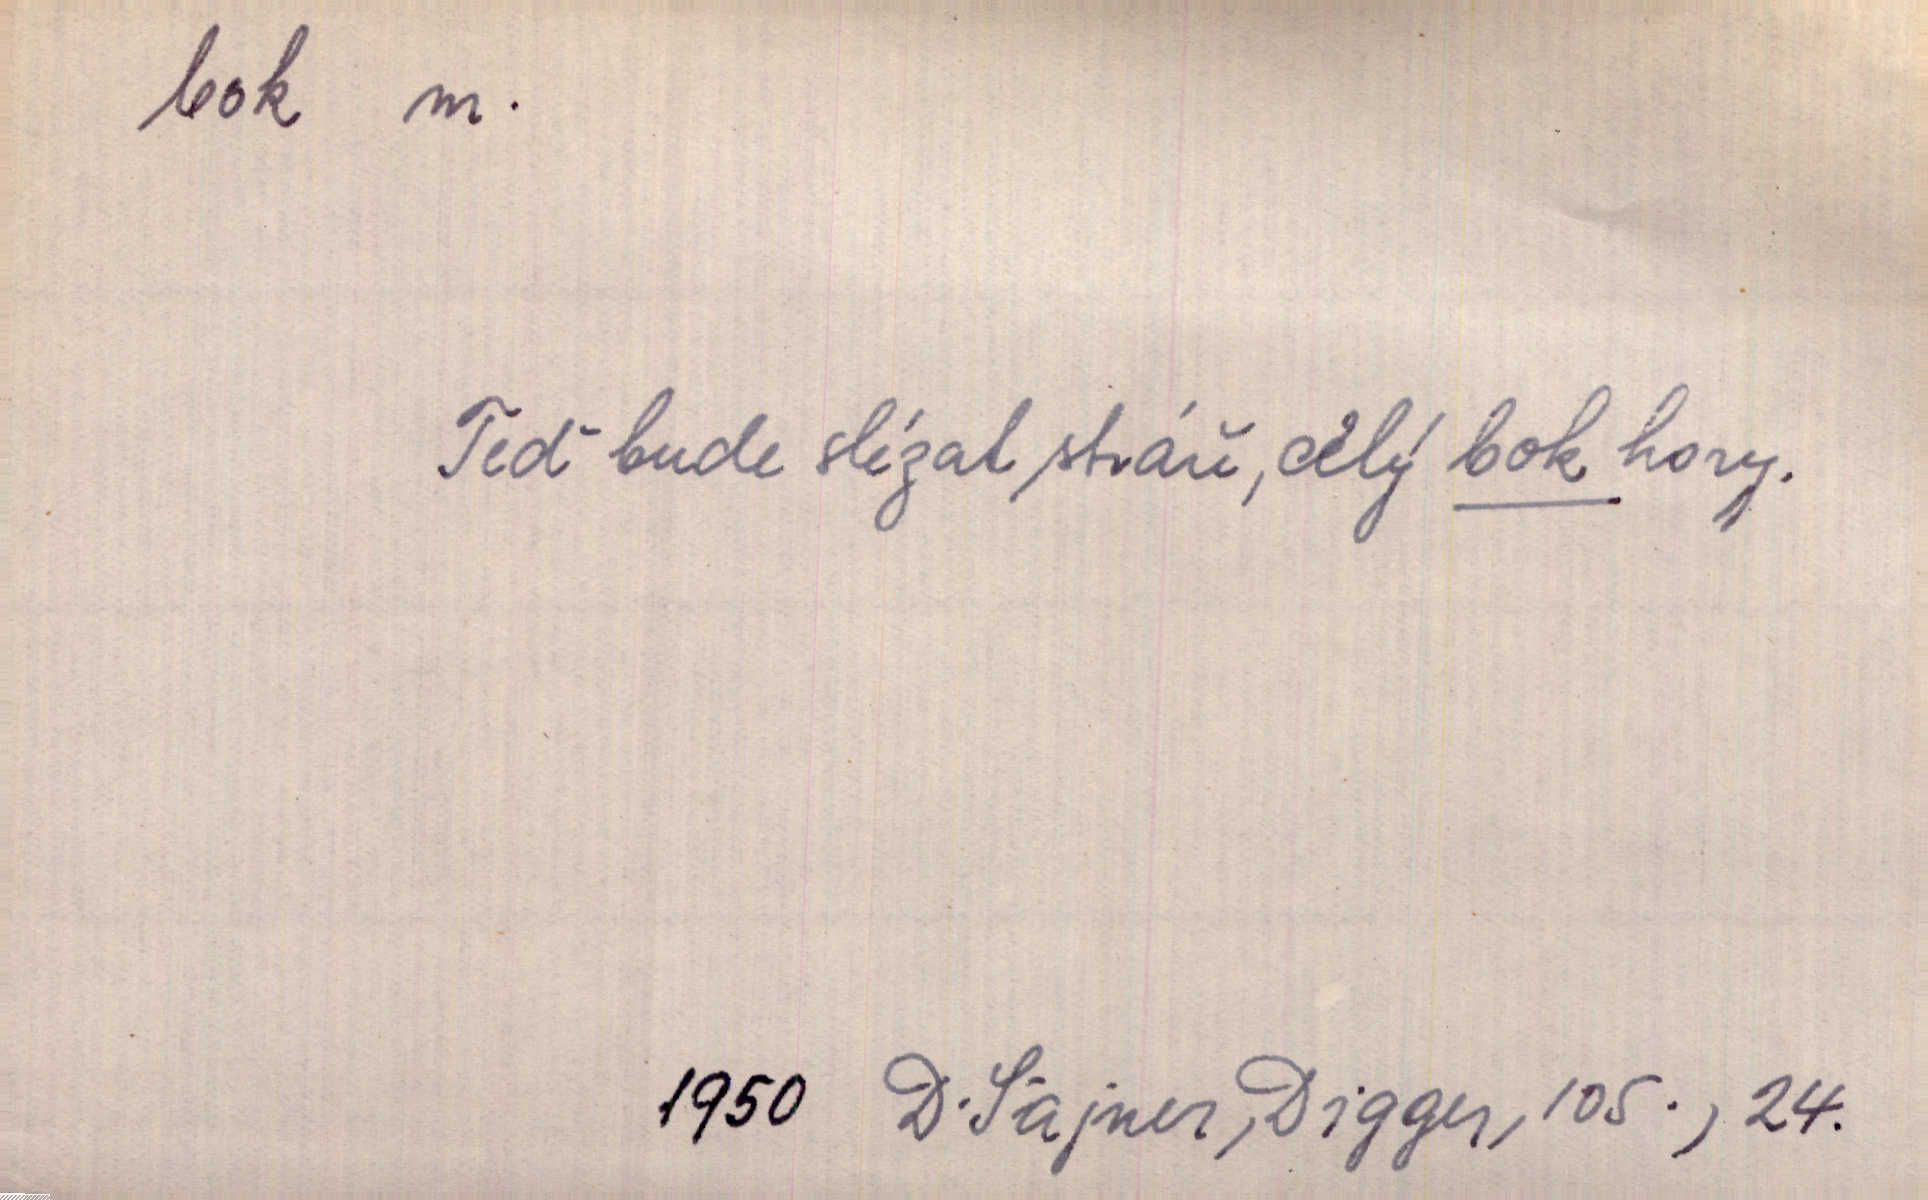 bok m.
Teď bude slézat stráň, celý bok hory.
1950 D. Šajner, Digger, 105., 24.